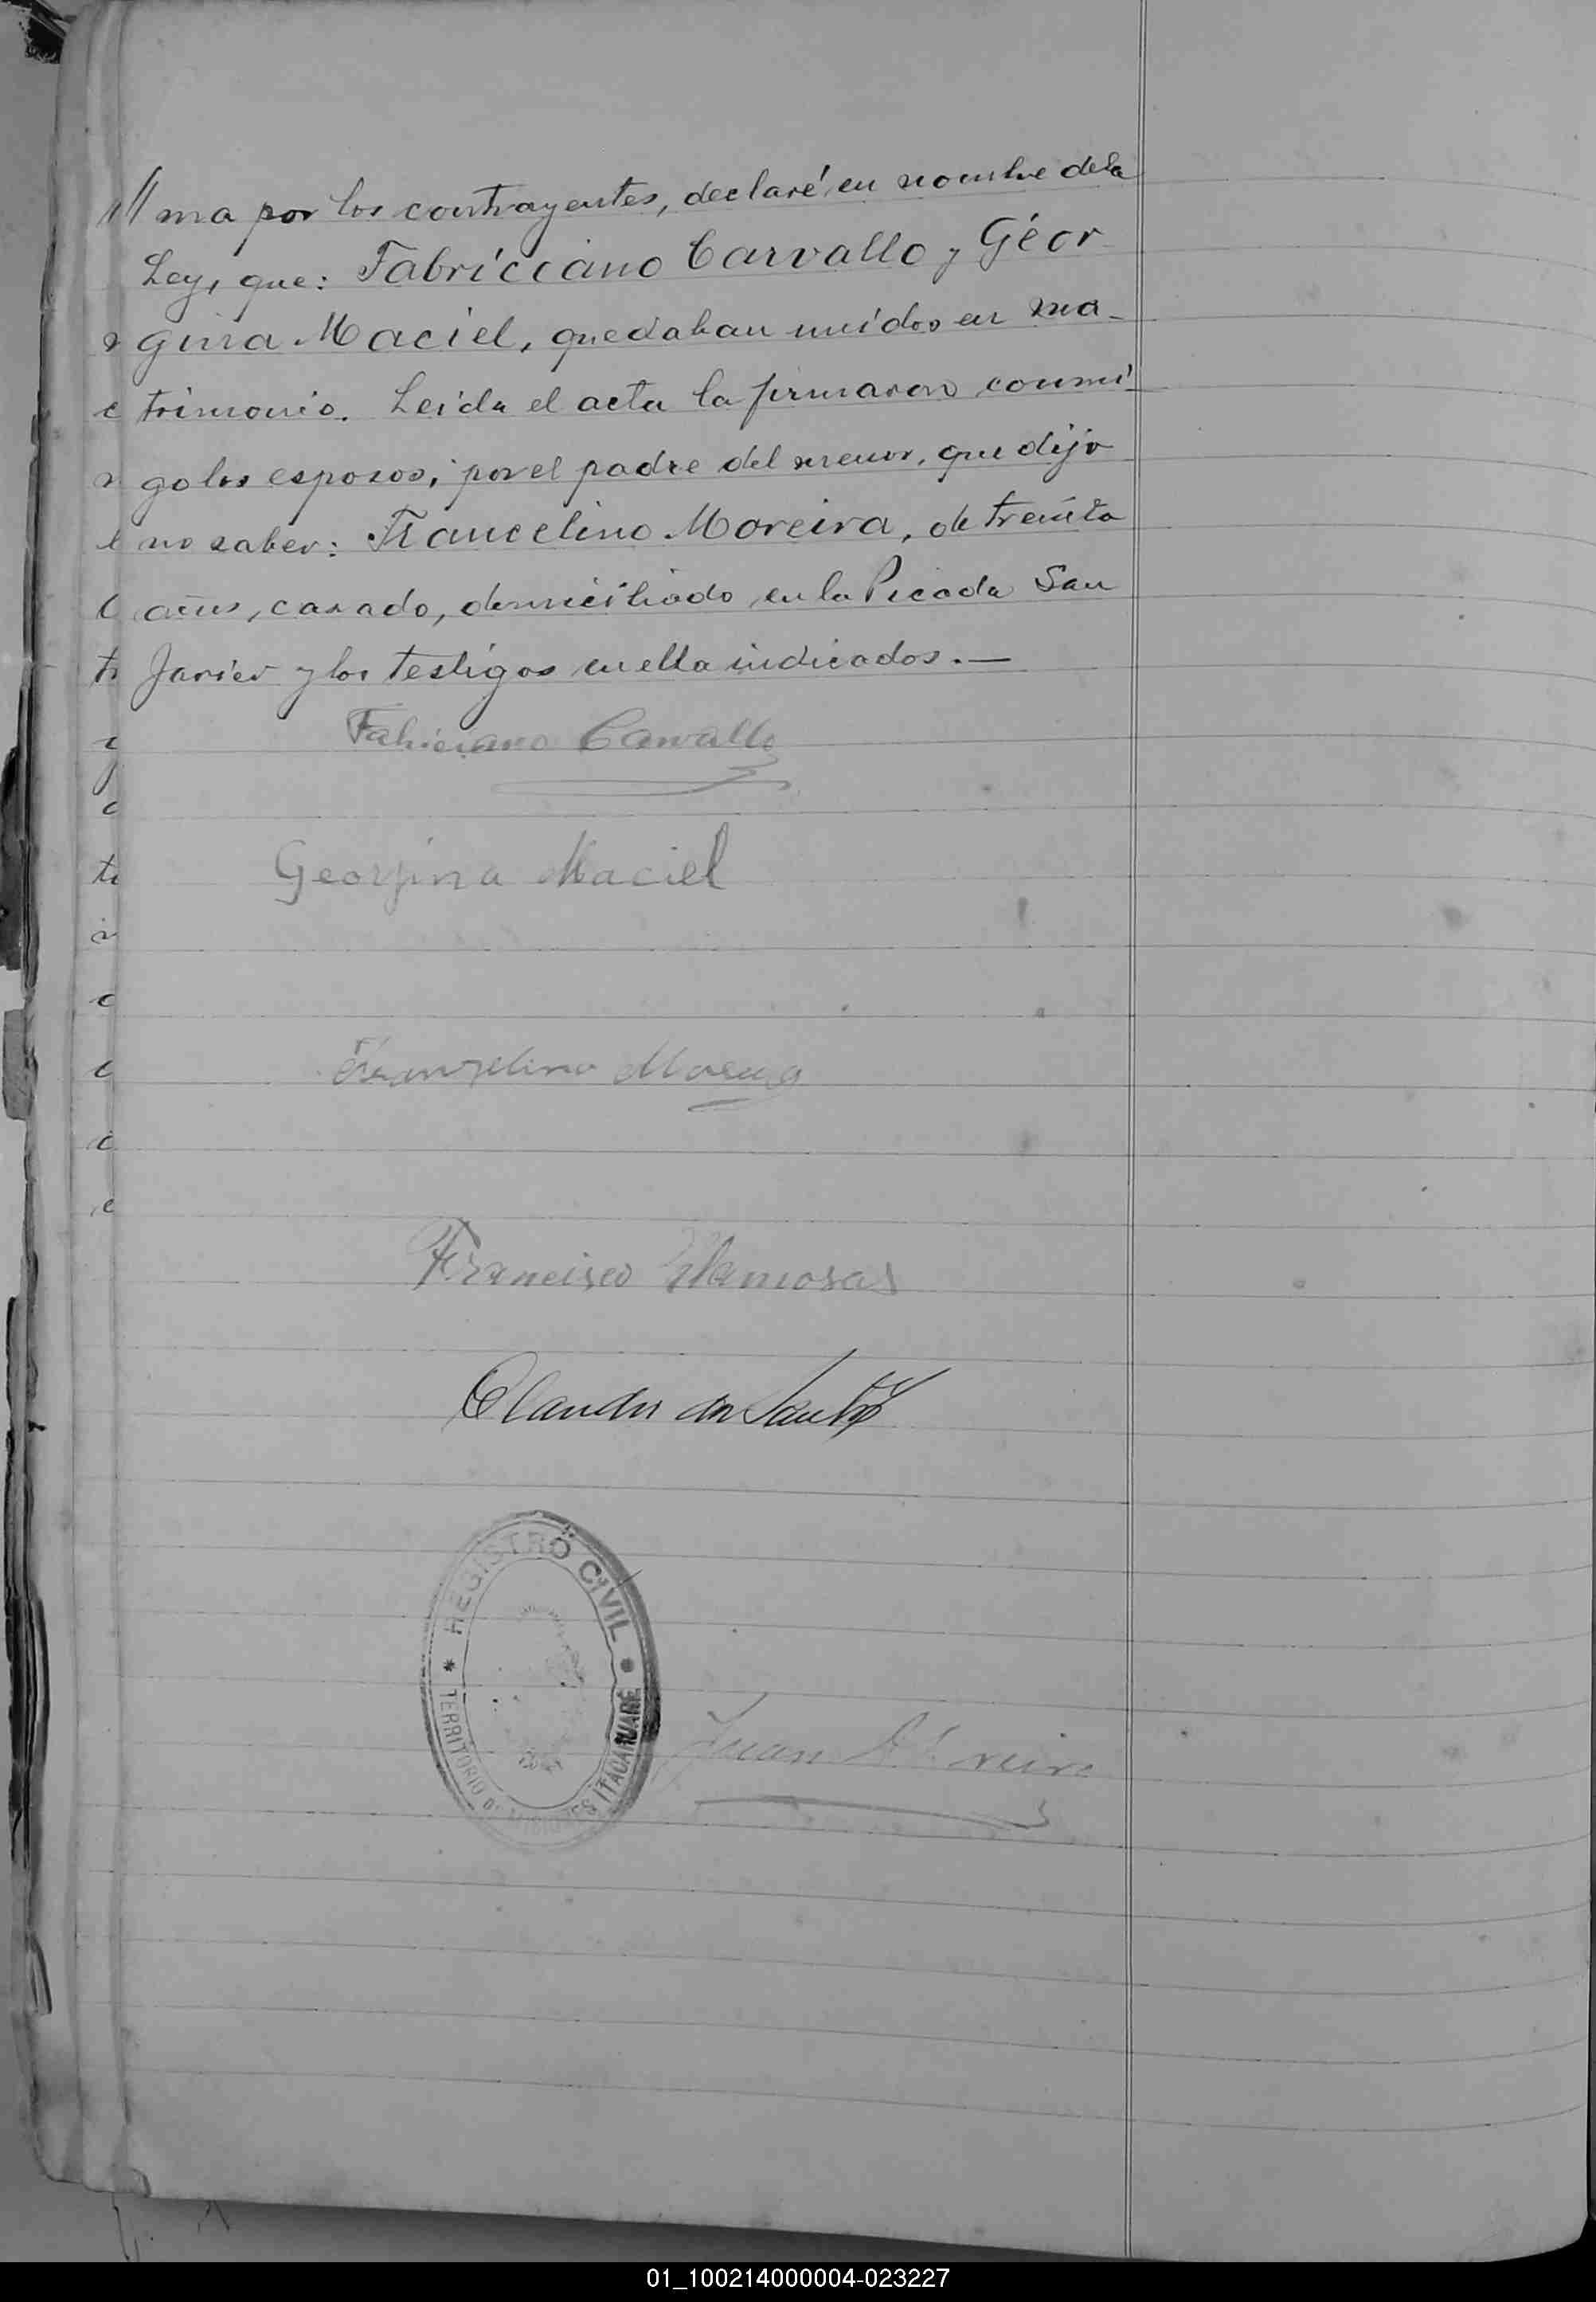 // ma por los contrayentes, declaré en nombre de la
Ley, que: Fabricciano Carvallo y Géor
gina Maciel, quedaban unidos en ma-
trimonio. Leida el acta la firmaron conmi
go los esposos; por el padre del menor, que dijo
no saber: Francelino Moreira, de treinta
años, casado, domiciliado en la Picada San
Javier y los testigos en ella indicados.—
Fabriciano Carvallo
Georgina Maciel
Francisco Llamosas
REGISTRO CIVIL
TERRITORIO DE MISIONES ITACARUARE
Juan
01_100214000004-023227